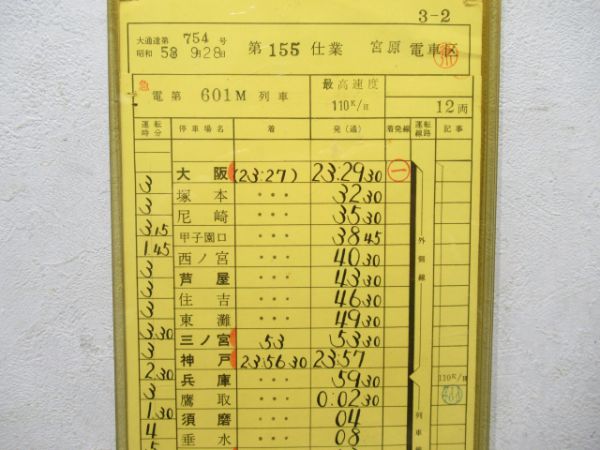 3-2
大通達第 754 号
昭和 58 9月28日
第 155 仕業 宮原 電車区
急 電第 601M 列車 最高速度 110K/H 12両
運転時分 停車場名 着 発(通) 着発線 運転線路 記事
大阪 (23:27) 23:29 30 一
3 塚本 ・・・ 32 30
3 尼崎 ・・・ 35 30
3 15 甲子園口 ・・・ 38 45
1 45 西ノ宮 ・・・ 40 30
3 芦屋 ・・・ 43 30
3 住吉 ・・・ 46 30
3 東灘 ・・・ 49 30
3 30 三ノ宮 53 53 30
3 神戸 23:56 30 23:57
2 30 兵庫 ・・・ 59 30
3 鷹取 ・・・ 0:02 30
1 30 須磨 ・・・ 04
4 垂水 ・・・ 08
外側線
列車
110K/H